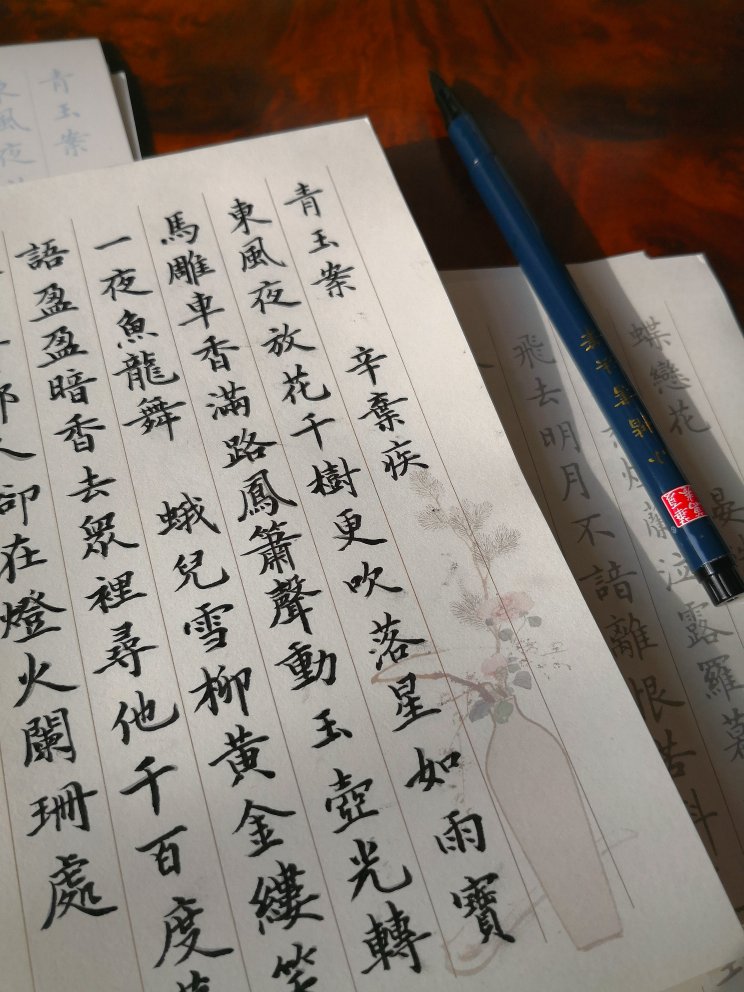 青玉案 辛棄疾
東風夜放花千樹更吹落星如雨寶
馬雕車香滿路鳳簫聲動玉壺光轉
一夜魚龍舞 蛾兒雪柳黃金縷笑
語盈盈暗香去眾裡尋他千百度
那人卻在燈火闌珊處
蝶戀花 晏
蘭泣露羅幕
飛去明月不諳離恨苦斜
青玉案
東風夜